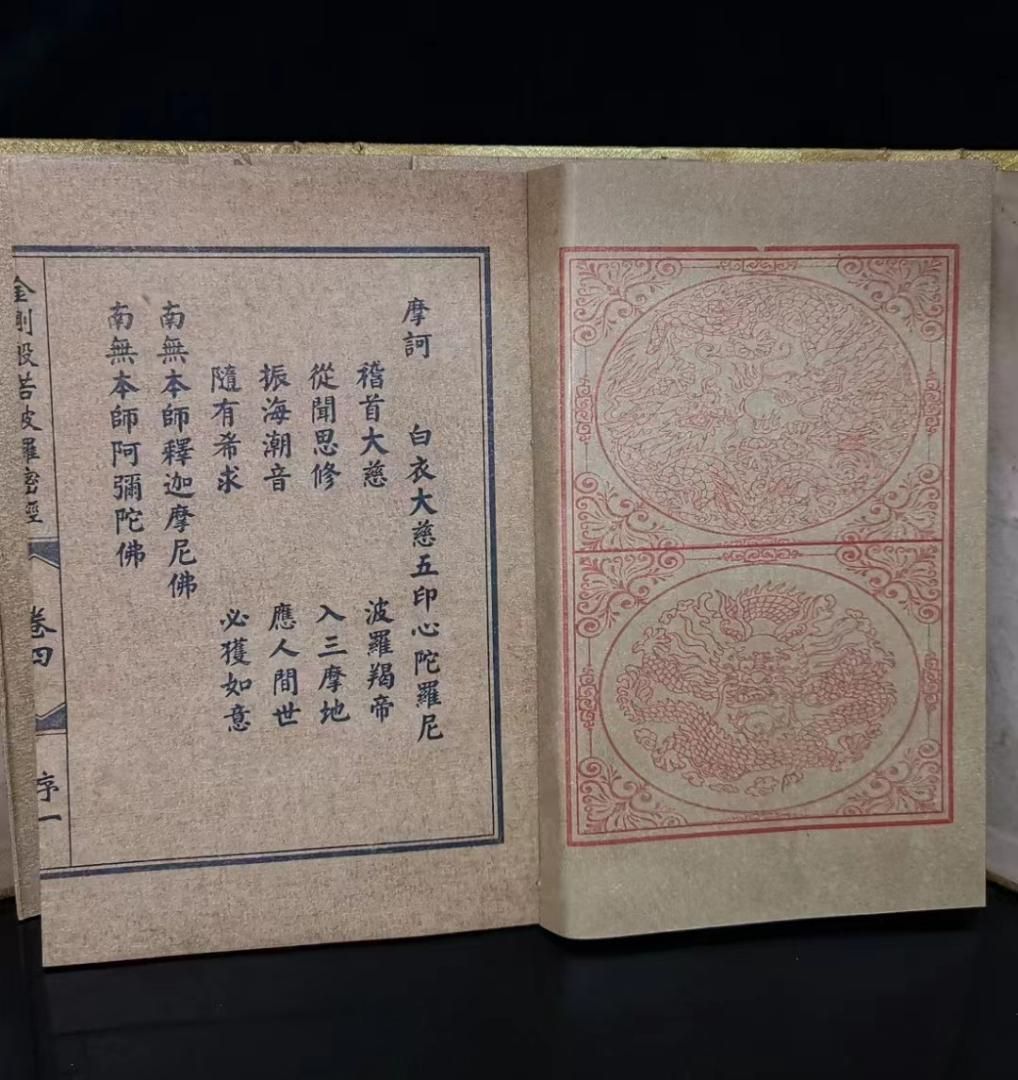 摩訶 白衣大慈五印心陀羅尼
稽首大慈 波羅羯帝
從聞思修 入三摩地
振海潮音 應人間世
隨有希求 必獲如意
南無本師釋迦摩尼佛
南無本師阿彌陀佛
金剛般若波羅密經 卷四 序一